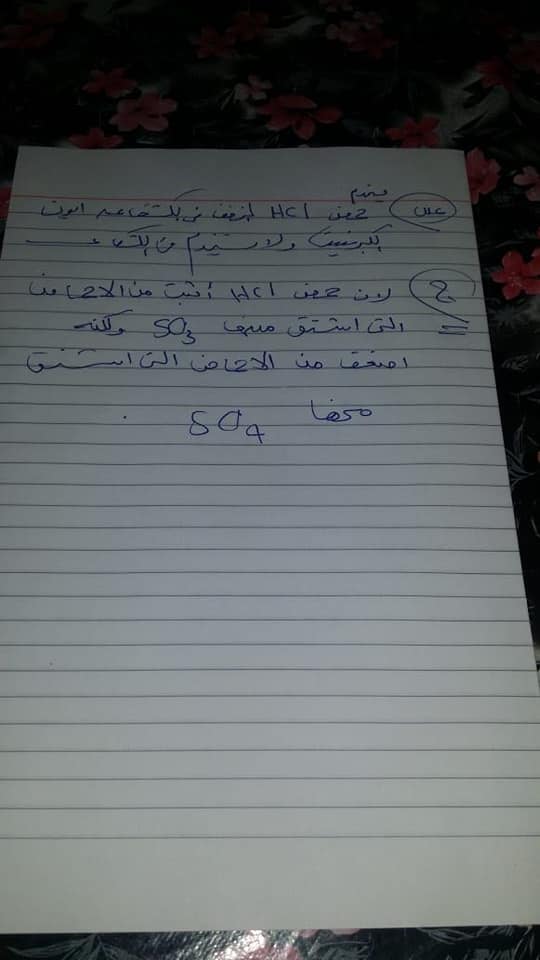 علل يستخدم حمض HCl المخفف فى الكشف عن ايون
الكبريتيت ولا يستخدم فى الكشف عن
ج لان حمض HCl أثبت من الاحماض
التى اشتق منها SO3 ولكنه
اضعف من الاحماض التى اشتق
منها SO4